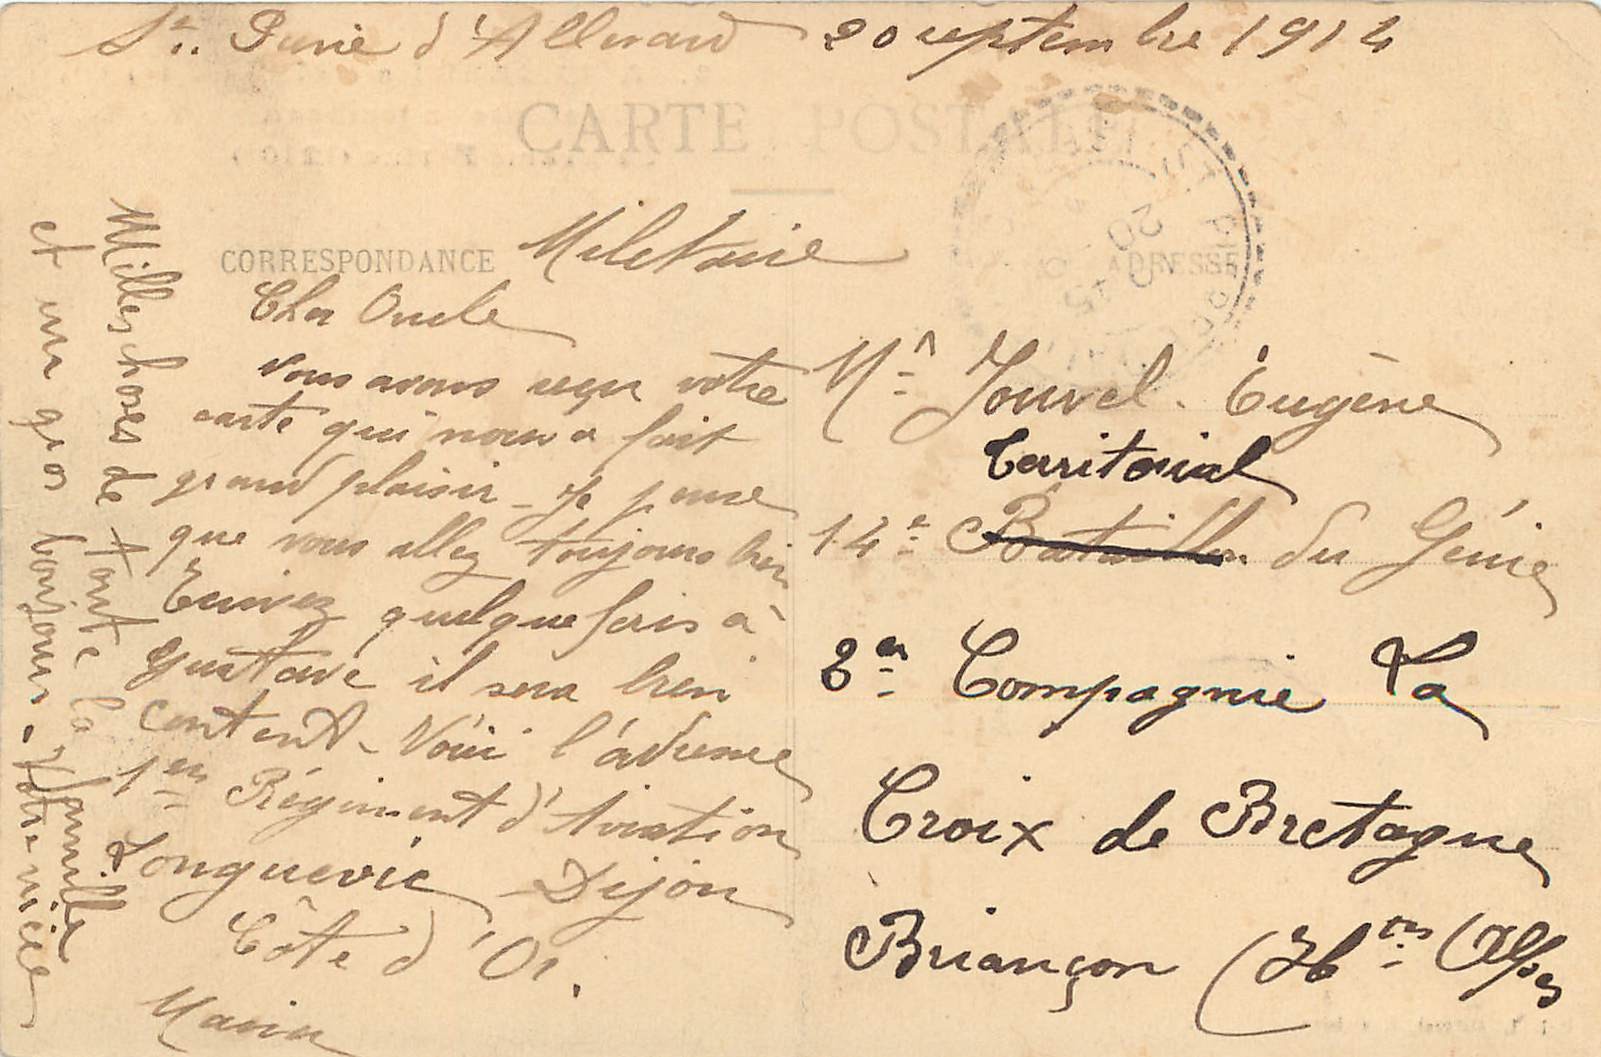 St. Pierre d'Allevard 20 septembre 1914
CARTE POSTALE
CORRESPONDANCE
Militaire
ADRESSE
Cher Oncle
Vous avons reçu votre
carte qui nous a fait
grand plaisir - Je pense
que vous allez toujours bien
Ecrivez quelque fois à
Gustave il sera bien
content - Voici l'adresse
1er Régiment d'Aviation
Longuevic Dijon
Côte d'Or.
Maria
Milles choses de toute la famille
et un gros bonjour. Votre nièce
Mr Jouvel. Eugène
Territorial
14e Bataillon du Génie
8em Compagnie La
Croix de Bretagne
Briançon (Htes Alpes